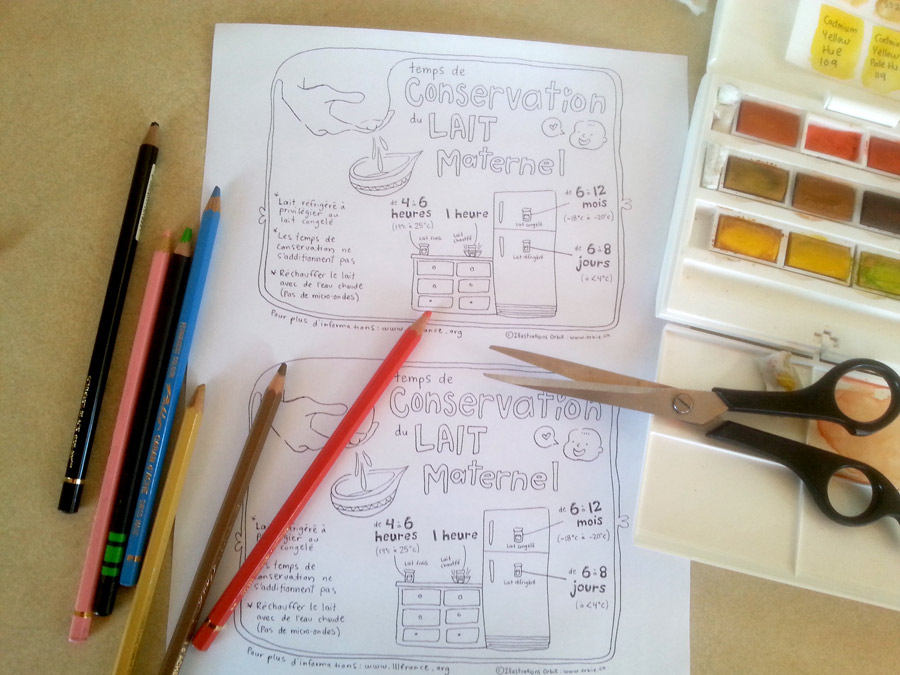 Cadmium
Yellow
Hue
109
Yellow
Pale Hu
119
temps de
Conservation
du LAIT
Maternel
* Lait réfrigéré à
privilégier au
lait congelé
* Les temps de
conservation ne
s'additionnent pas
* Réchauffer le lait
avec de l'eau chaude
(Pas de micro-ondes)
de 4 à 6
heures
(19°c à 25°c)
1 heure
Lait frais
Lait chauffé
de 6 à 12
mois
(-18°c à -20°c)
Lait congelé
de 6 à 8
jours
(0 à 4°c)
Lait réfrigéré
Pour plus d'informations: www. rance.org
©Illustrations Orbie. www.orbie.ca
temps de
Conservation
du LAIT
Maternel
réfrigéré à
congelé
temps de
conservation ne
s'additionnent pas
* Réchauffer le lait
avec de l'eau chaude
(Pas de micro-ondes)
de 4 à 6
heures
(19°c à 25°c)
1 heure
Lait frais
Lait chauffé
de 6 à 12
mois
(-18°c à -20°c)
Lait congelé
de 6 à 8
jours
Lait réfrigéré
Pour plus d'informations: www.lllfrance.org
©Illustrations Orbie. www.orbie.ca